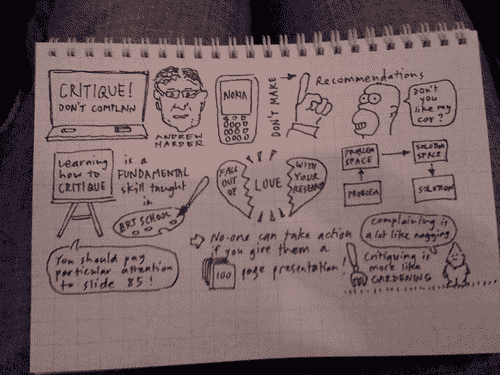 CRITIQUE!
DON'T COMPLAIN
ANDREW
HARDER
NOKIA
DON'T MAKE
Recommendations
Don't
you
like my
car?
Learning
how to
CRITIQUE
is a
FUNDAMENTAL
skill taught
in
ART SCHOOL
FALL
OUT OF
LOVE
WITH
YOUR
RESEARCH
PROBLEM
SPACE
SOLUTION
SPACE
PROBLEM
SOLUTION
You should pay
particular attention
to slide 85!
No-one can take action
if you give them a
100 page presentation!
Complaining is
a lot like nagging
Critiquing is
more like
GARDENING